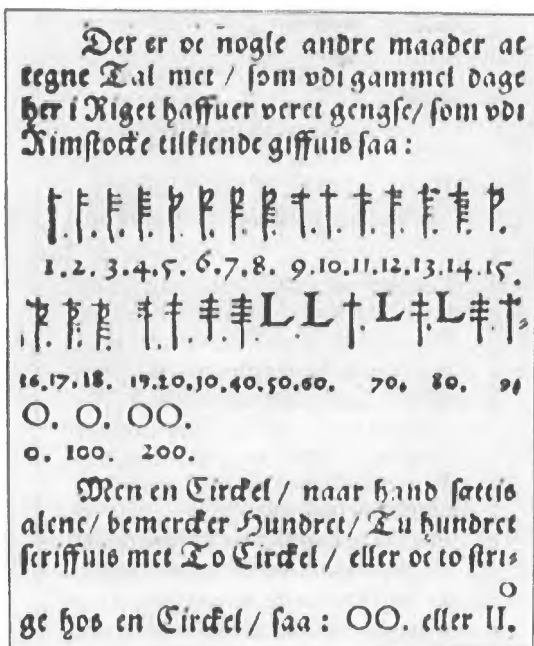 Der er oc nogle andre maader at
tegne Tal met / som vdi gammel dage
her i Riget haffuer veret gengse / som vdi
Rimstocke tilkiende giffuis saa :
1. 2. 3. 4. 5. 6. 7. 8. 9. 10. 11. 12. 13. 14. 15.
L L L L
16. 17. 18. 19. 20. 30. 40. 50. 60. 70. 80. 9
O. O. OO.
0. 100. 200.
Men en Circkel / naar hand sættis
alene / bemercker Hundret / Tu hundret
scriffuis met To Circkel / eller oc to stri⸗
ge hos en Circkel / saa : OO. eller II.